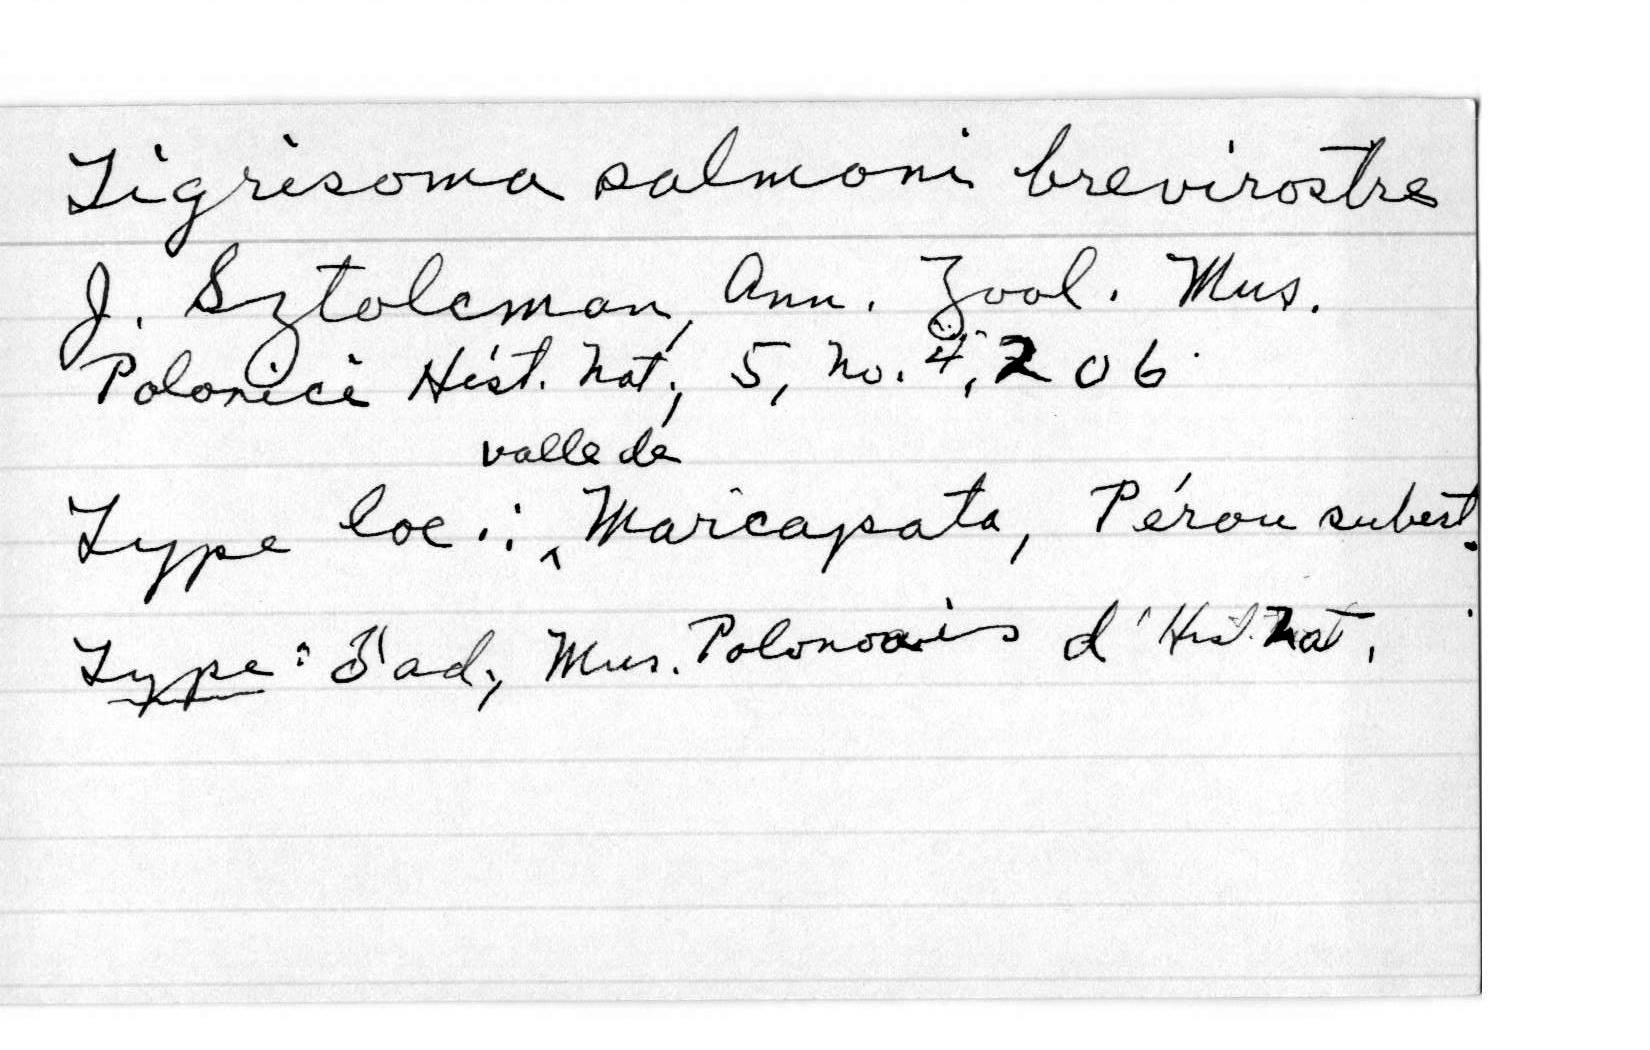 Tigrisoma salmoni brevirostre
J. Sztolcman, Ann. Zool. Mus.
Polonici Hist. Nat., 5, no. 4, 206
valle de
Type loc.: ‸ Marcapata, Pérou subest.
Type: ♂ ad., Mus. Polonais d'Hist. Nat.